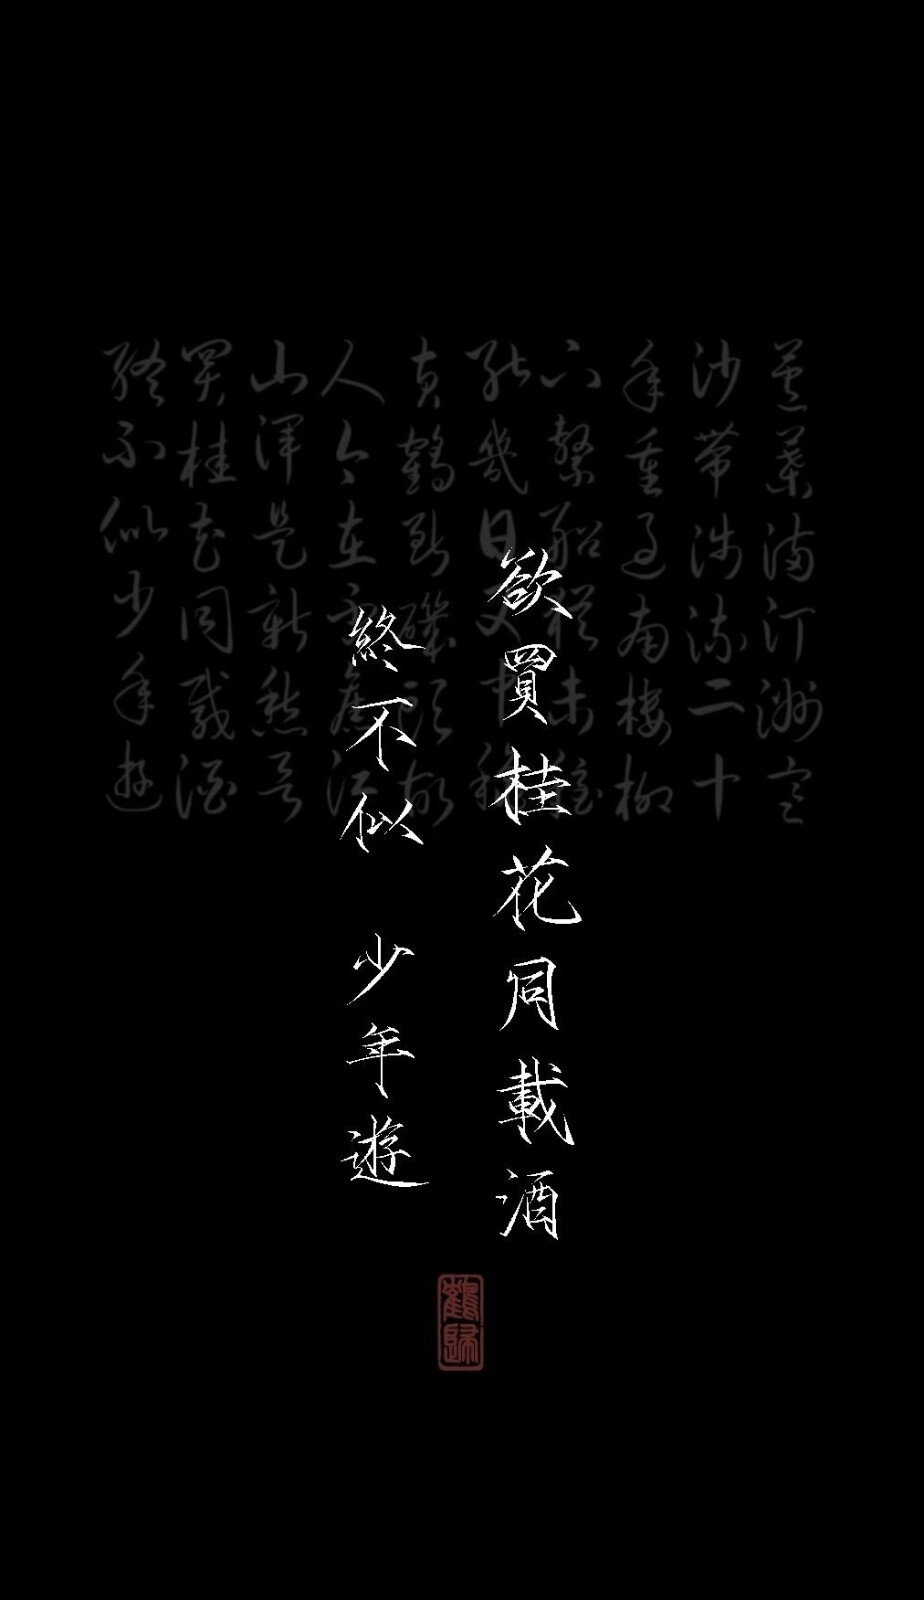 蘆葉滿汀洲寒
沙帶淺流二十
年重過南樓柳
下繫船猶未穩
能幾日又中秋
黃鶴斷磯頭故
人今在否舊江
山渾是新愁欲
買桂花同載酒
終不似少年遊
欲買桂花同載酒
終不似 少年遊
鶴歸